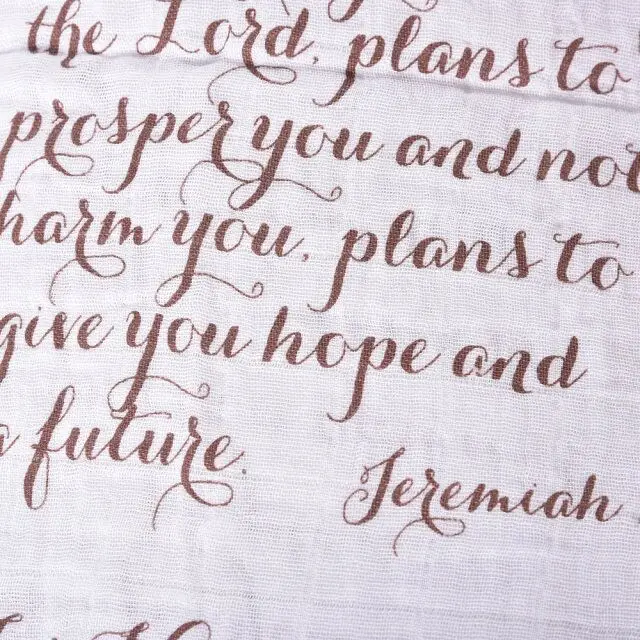 the Lord, plans to
prosper you and not
harm you, plans to
give you hope and
a future.
Jeremiah